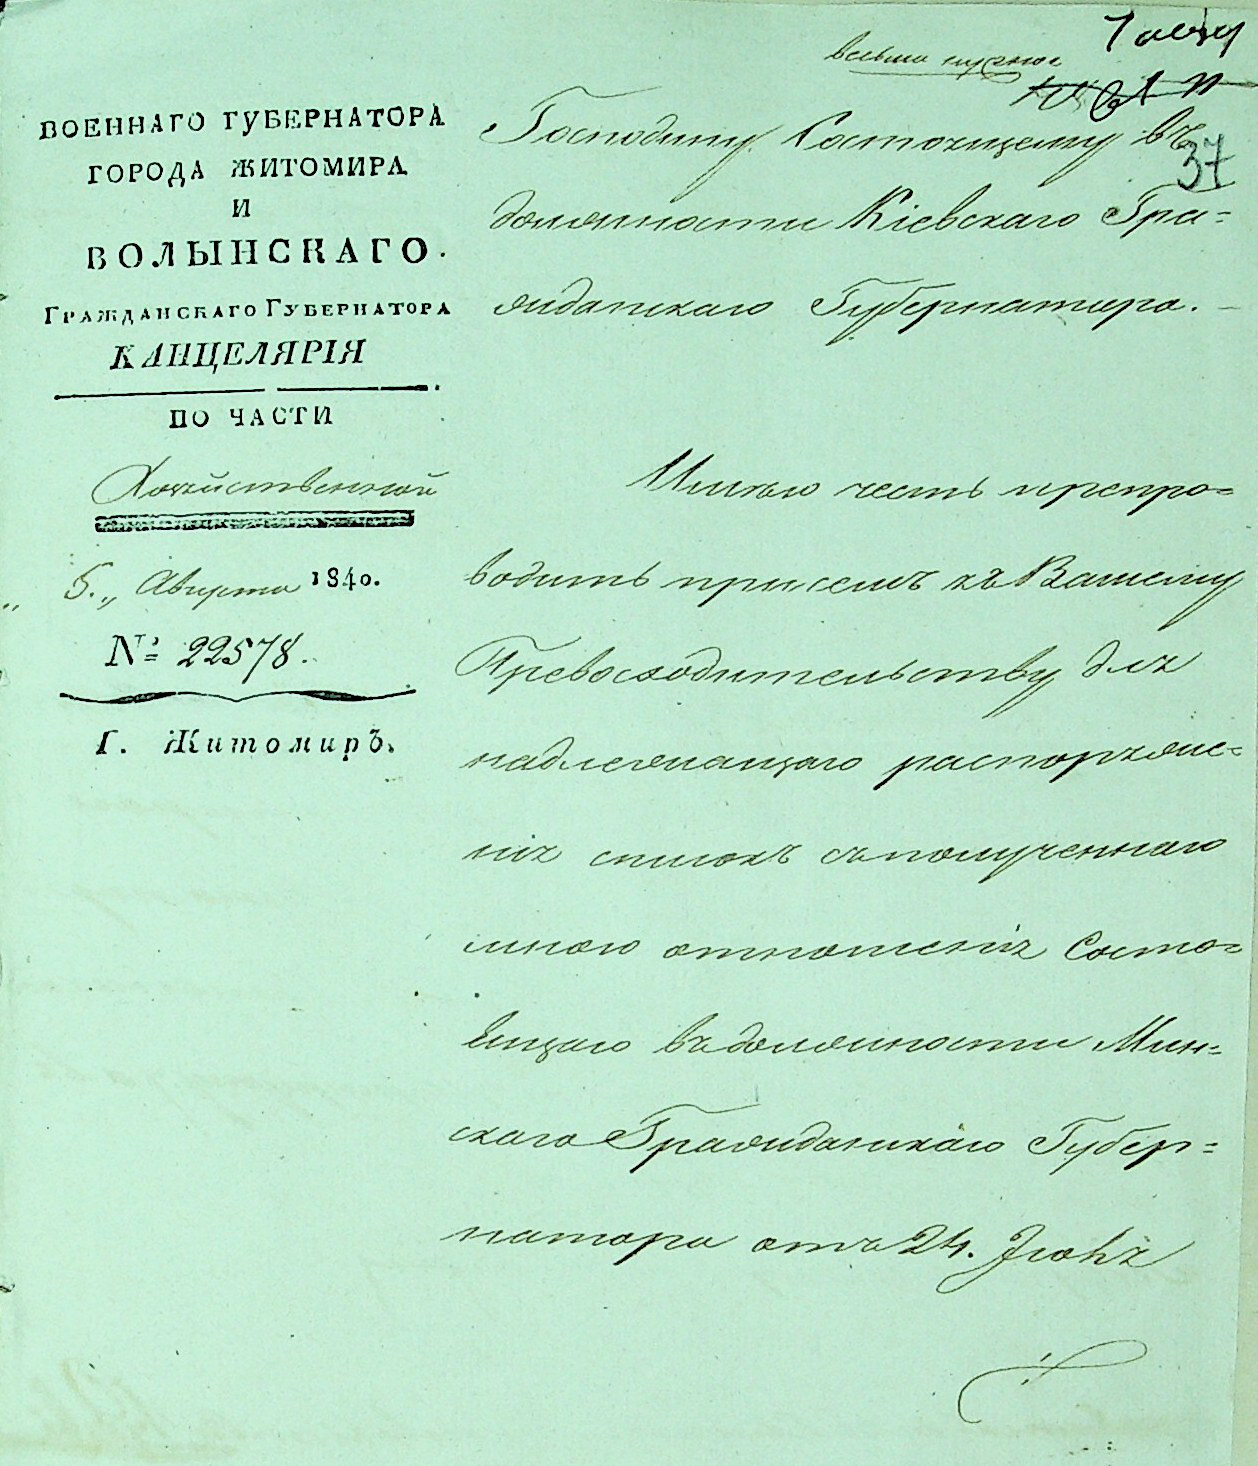 весьма нужное
37
ВОЕННАГО ГУБЕРНАТОРА
ГОРОДА ЖИТОМИРА
И
ВОЛЫНСКАГО.
ГРАЖДАНСКАГО ГУБЕРНАТОРА
КАНЦЕЛЯРІЯ
ПО ЧАСТИ
Хозяйственной
„ 5. „ Августа 1840.
№ 22578.
Г. Житомиръ.
Господину Состоящему въ
должности Кіевскаго Гра=
жданскаго Губернатора.
Имѣю честь препро=
водить присемъ къ Вашему
Превосходительству для
надлежащаго распоряже=
нія списокъ съ полученнаго
мною отношенія Состо=
ящаго въ должности Мин=
скаго Гражданскаго Губер=
натора отъ 24. Іюля